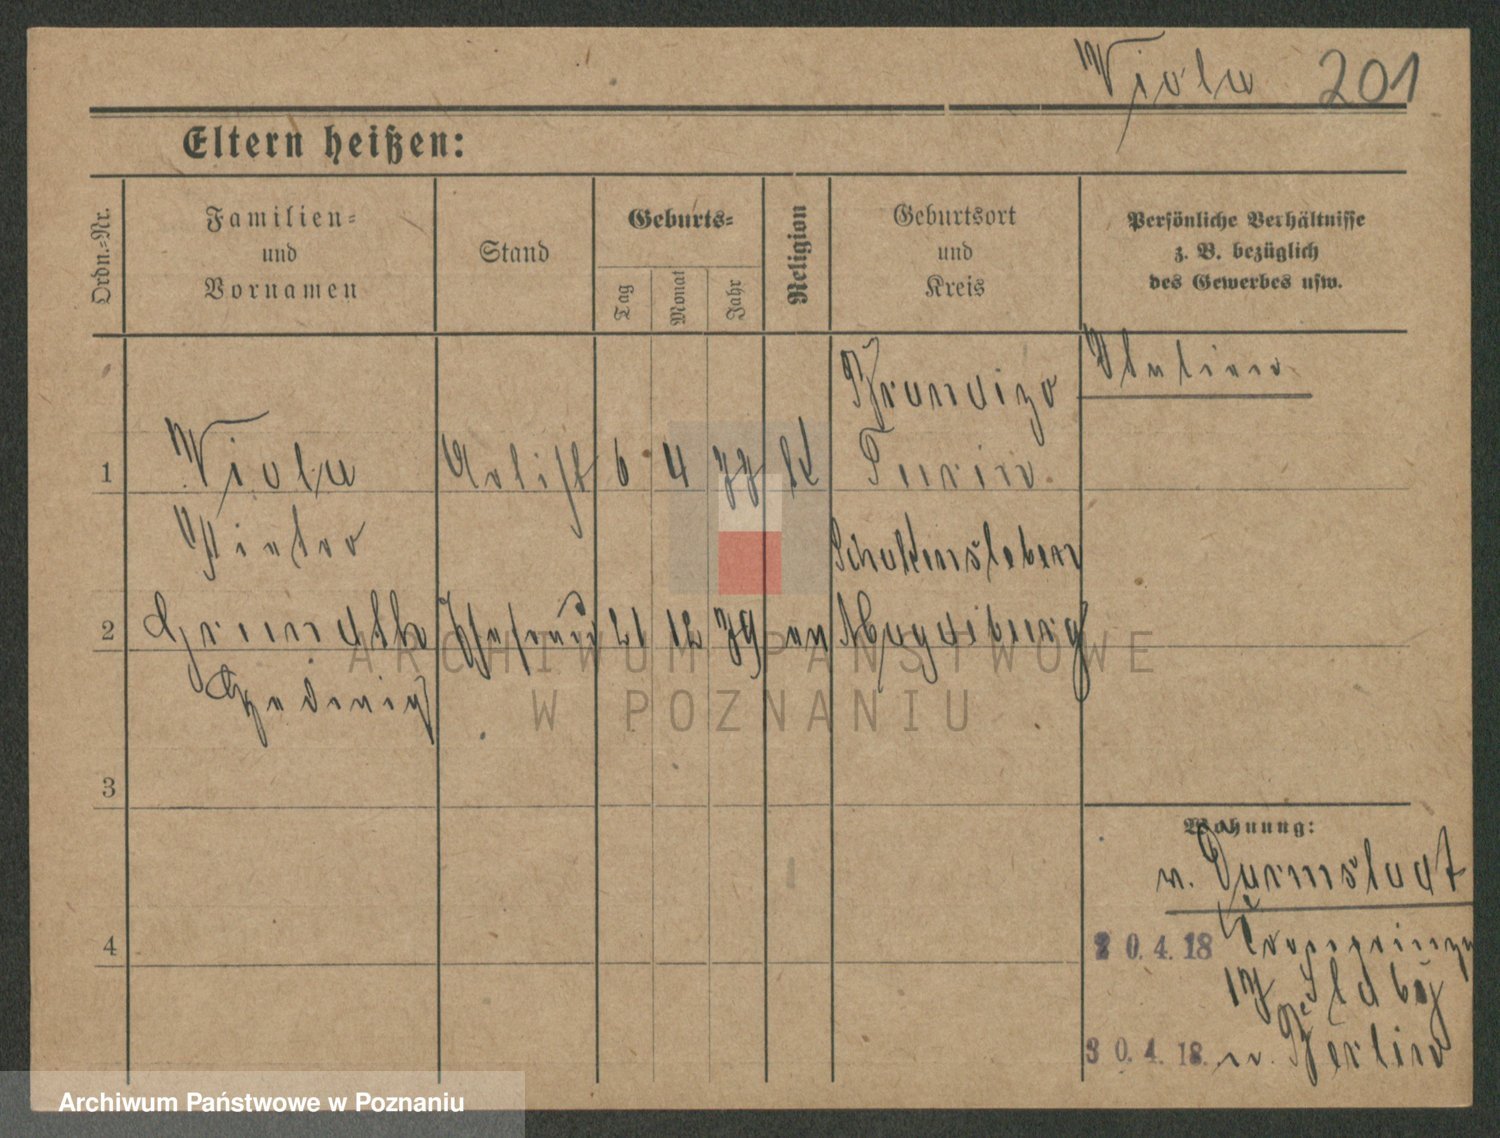 Viola 201
Eltern heißen:
Ordn.-Nr.
Familien-
und
Vornamen
Stand
Geburts-
Tag
Monat
Jahr
Religion
Geburtsort
und
Kreis
Persönliche Verhältnisse
z. B. bezüglich
des Gewerbes usw.
Italien
1
Viola
Artist
6
4
77
K
Turin
Schakensleben
2
Ehefrau
21
12
79
ev
Magdeburg
Hedwig
ARCHIWUM PAŃSTWOWE
W POZNANIU
3
Wohnung:
n. Darmstadt
4
20.4.18
17
30.4.18. n. Berlin
Archiwum Państwowe w Poznaniu